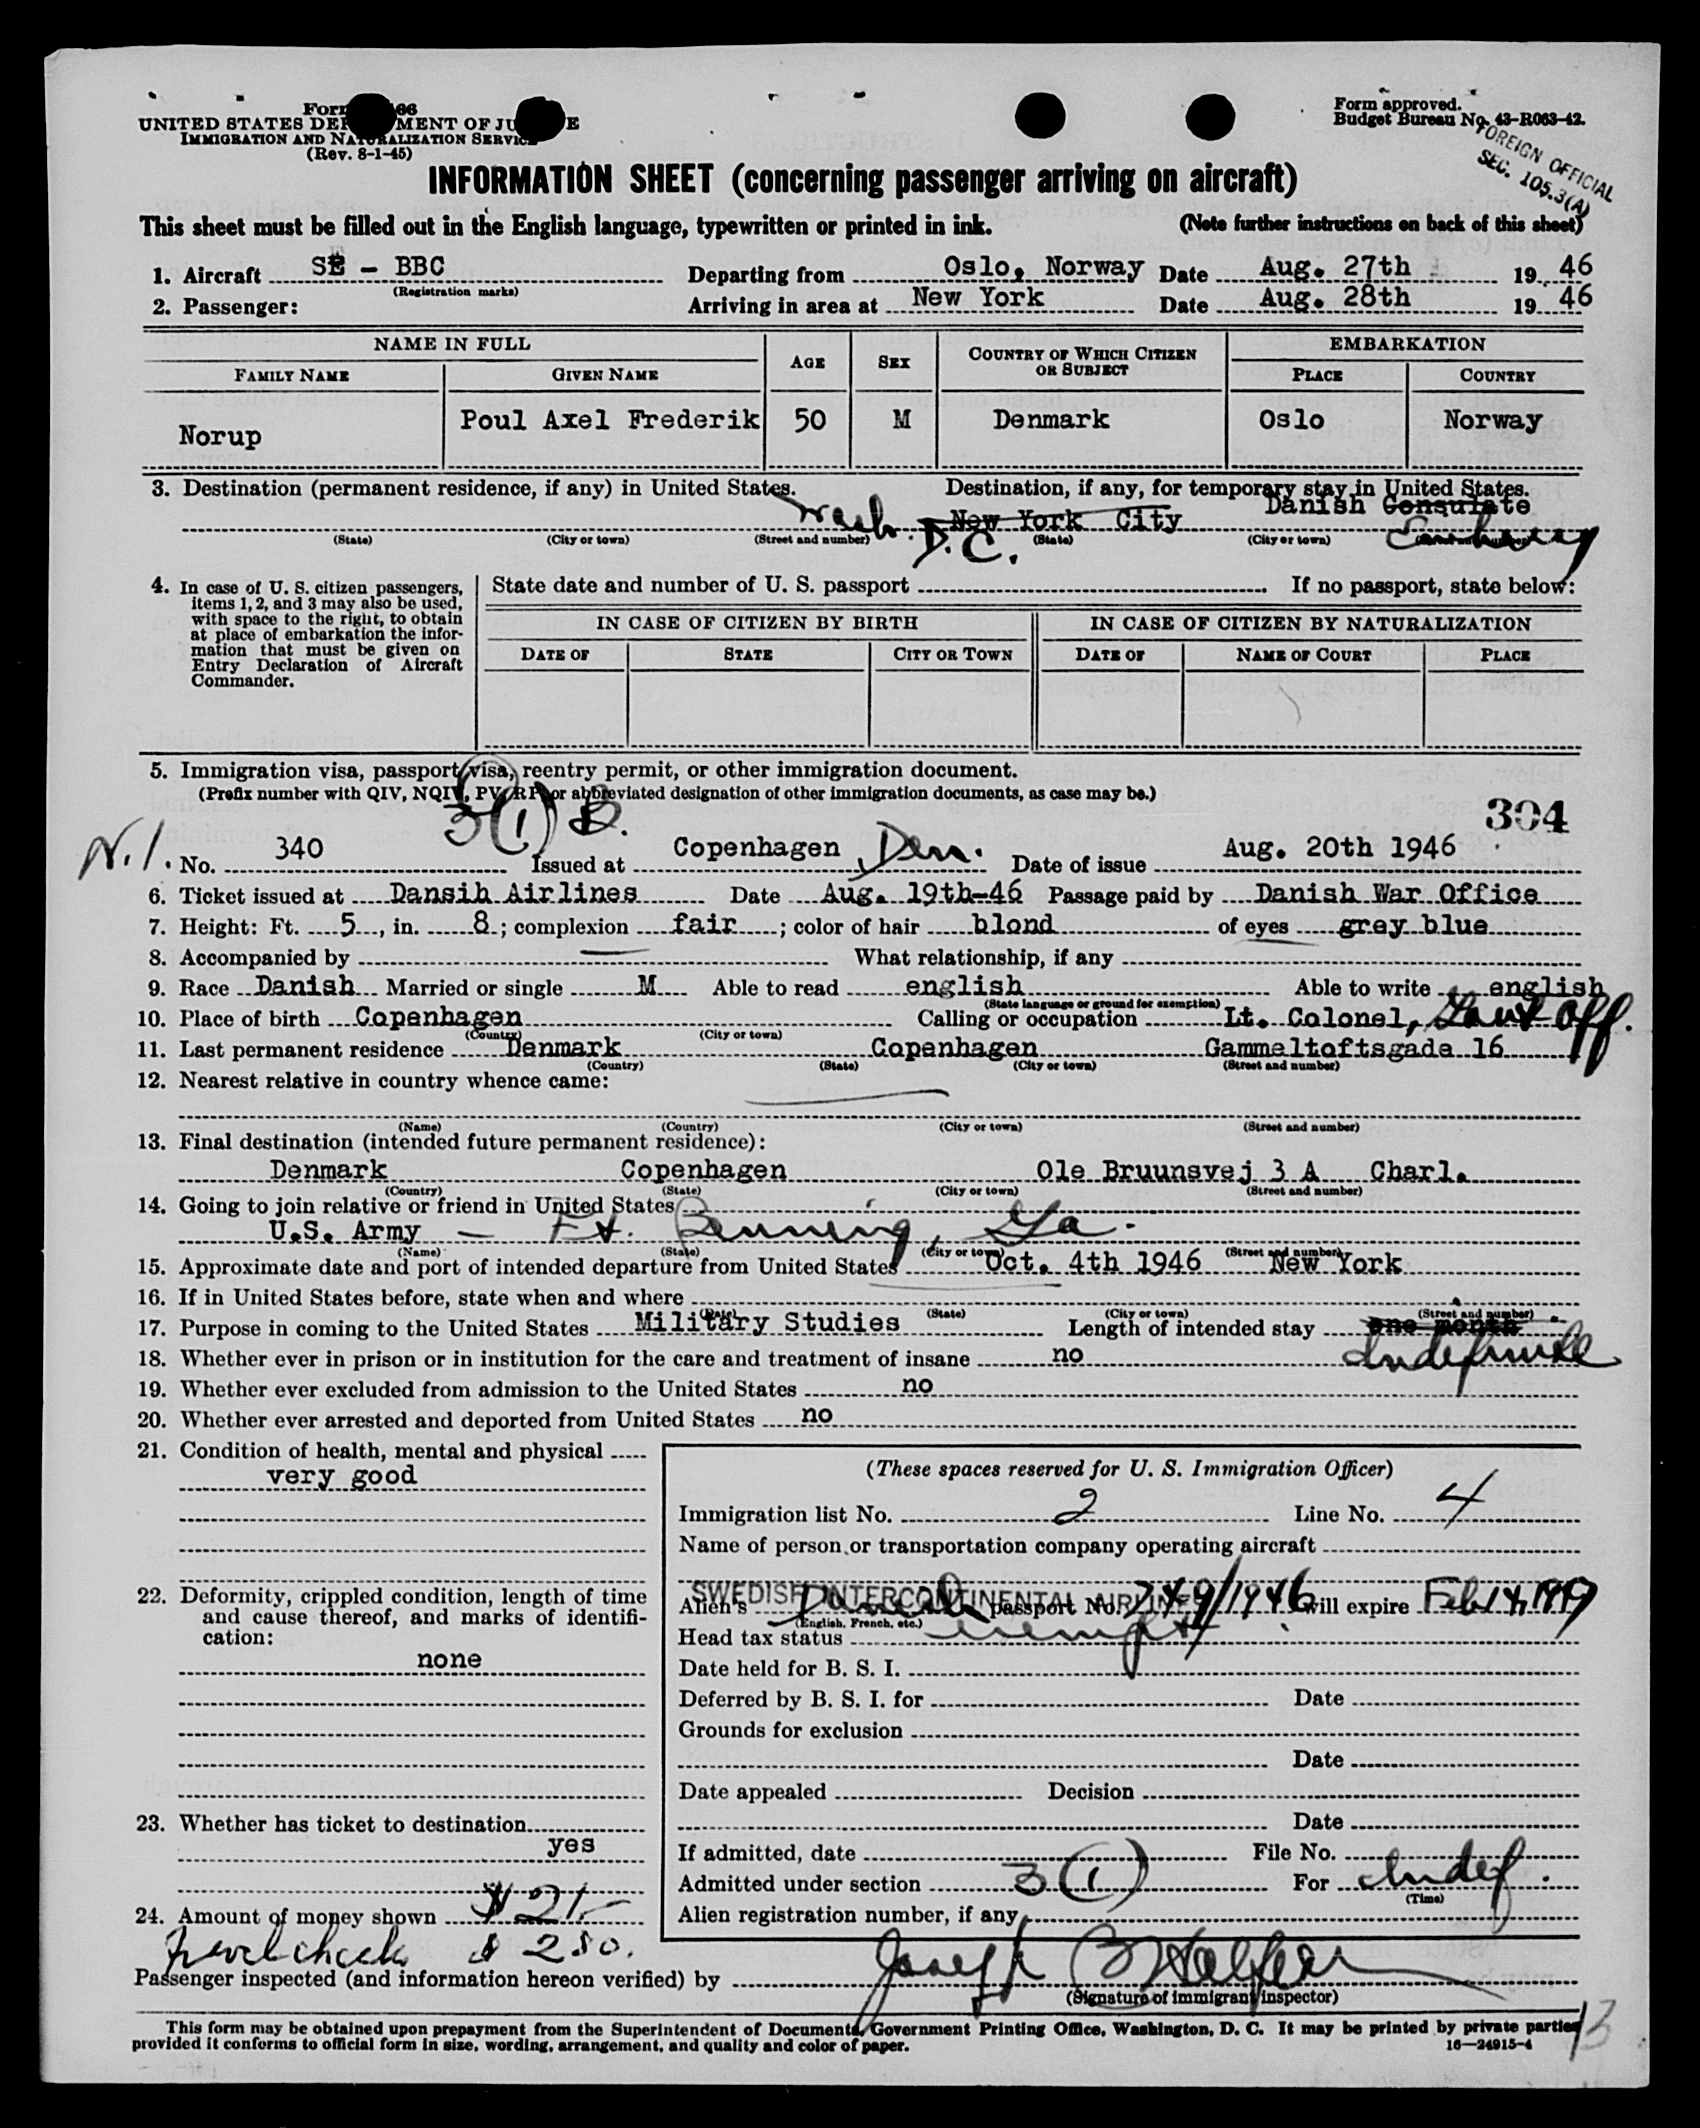 Form 66
UNITED STATES DEPARTMENT OF JUSTICE
IMMIGRATION AND NATURALIZATION SERVICE
(Rev. 8-1-45)
Form approved.
Budget Bureau No. 43-R063-42.
FOREIGN OFFICIAL
SEC. 105.3(A)
INFORMATION SHEET (concerning passenger arriving on aircraft)
This sheet must be filled out in the English language, typewritten or printed in ink. (Note further instructions on back of this sheet)
1. Aircraft SE - BBC Departing from Oslo, Norway Date Aug. 27th 19 46
(Registration marks)
2. Passenger: Arriving in area at New York Date Aug. 28th 19 46
NAME IN FULL AGE SEX COUNTRY OF WHICH CITIZEN OR SUBJECT EMBARKATION
FAMILY NAME GIVEN NAME PLACE COUNTRY
Norup Poul Axel Frederik 50 M Denmark Oslo Norway
3. Destination (permanent residence, if any) in United States. Destination, if any, for temporary stay in United States.
Wash. D.C. New York City Danish Consulate
(State) (City or town) (Street and number) (State) (City or town)
4. In case of U. S. citizen passengers, items 1, 2, and 3 may also be used, with space to the right, to obtain at place of embarkation the information that must be given on Entry Declaration of Aircraft Commander.
State date and number of U. S. passport If no passport, state below:
IN CASE OF CITIZEN BY BIRTH IN CASE OF CITIZEN BY NATURALIZATION
DATE OF STATE CITY OR TOWN DATE OF NAME OF COURT PLACE
5. Immigration visa, passport visa, reentry permit, or other immigration document.
(Prefix number with QIV, NQIV, PV, RP, or abbreviated designation of other immigration documents, as case may be.)
3(1)
304
No. 340 Issued at Copenhagen Den. Date of issue Aug. 20th 1946
6. Ticket issued at Dansih Airlines Date Aug. 19th-46 Passage paid by Danish War Office
7. Height: Ft. 5, in. 8; complexion fair; color of hair blond of eyes grey blue
8. Accompanied by What relationship, if any
9. Race Danish Married or single M Able to read english Able to write english
(State language or ground for exemption)
10. Place of birth Copenhagen Calling or occupation Lt. Colonel, Govt Off.
(Country) (City or town)
11. Last permanent residence Denmark Copenhagen Gammeltoftsgade 16
(Country) (State) (City or town) (Street and number)
12. Nearest relative in country whence came:
(Name) (Country) (City or town) (Street and number)
13. Final destination (intended future permanent residence):
Denmark Copenhagen Ole Bruunsvej 3 A Charl.
(Country) (State) (City or town) (Street and number)
14. Going to join relative or friend in United States
U.S. Army - Ft. Benning, Ga.
(Name) (State) (City or town) (Street and number)
15. Approximate date and port of intended departure from United States Oct. 4th 1946 New York
16. If in United States before, state when and where
(Date) (State) (City or town) (Street and number)
17. Purpose in coming to the United States Military Studies Length of intended stay one month
Indefinite
18. Whether ever in prison or in institution for the care and treatment of insane no
19. Whether ever excluded from admission to the United States no
20. Whether ever arrested and deported from United States no
21. Condition of health, mental and physical
very good
22. Deformity, crippled condition, length of time and cause thereof, and marks of identification:
none
23. Whether has ticket to destination
yes
24. Amount of money shown $21.-
$ 250.
(These spaces reserved for U. S. Immigration Officer)
Immigration list No. 2 Line No. 4
Name of person or transportation company operating aircraft
SWEDISH INTERCONTINENTAL AIRLINES
Alien's Danish passport No. will expire Feb 14, 1949
(English, French, etc.)
Head tax status exempt
Date held for B. S. I.
Deferred by B. S. I. for Date
Grounds for exclusion
Date
Date appealed Decision
Date
If admitted, date File No.
Admitted under section 3(1) For Indef.
(Time)
Alien registration number, if any
Passenger inspected (and information hereon verified) by Joseph
(Signature of immigrant inspector)
This form may be obtained upon prepayment from the Superintendent of Documents, Government Printing Office, Washington, D. C. It may be printed by private parties
provided it conforms to official form in size, wording, arrangement, and quality and color of paper. 16—24915-4